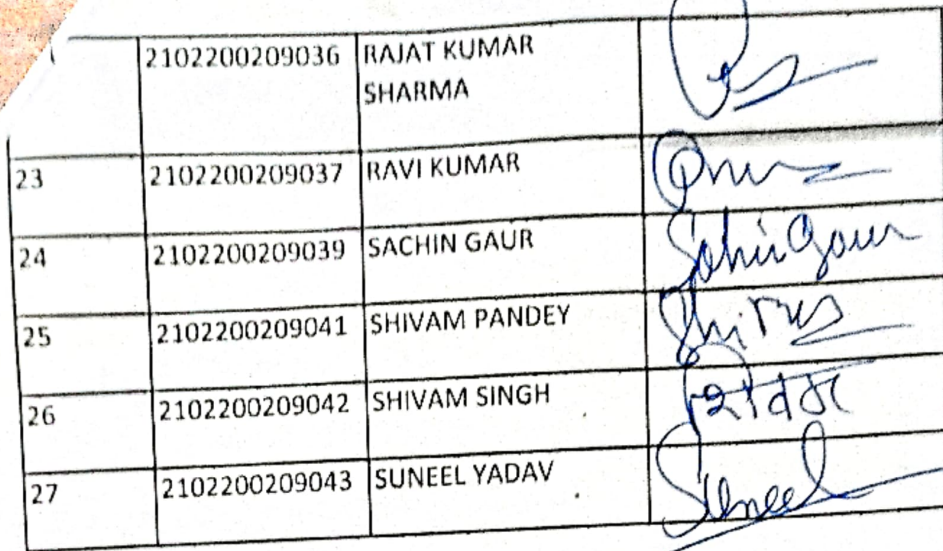 2102200209036 RAJAT KUMAR
SHARMA
23 2102200209037 RAVI KUMAR
24 2102200209039 SACHIN GAUR
25 2102200209041 SHIVAM PANDEY
26 2102200209042 SHIVAM SINGH
27 2102200209043 SUNEEL YADAV Suneel